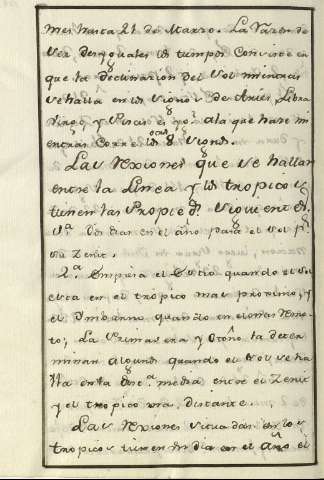 mes hasta 21 de Marzo. La razon de
ser desyguales los tiempos consiste en
que la declinacion del Sol mientras
se halla en los Signos de Aries, Libra
Virgo, y Piscis es mor. a la que hace mi
entras corre los otros 8 Signos.
Las Rexiones que se hallan
entre la Linea y los tropicos
tienen las Propieds. Siguientes.
1ª dos veces en el año pasa el Sol pr.
su Zenit.
2ª Empieza el Estio quando el Sol
esta en el tropico mas proximo, y
el Ymbierno quando en el mas remo-
to; La Primavera y Otoño la deter
minan algunos quando el Sol se ha
lla en la dista. media entre el Zenit
y el tropico mas distante.
Las Rexiones situadas en los
tropicos tienen un dia en el año el